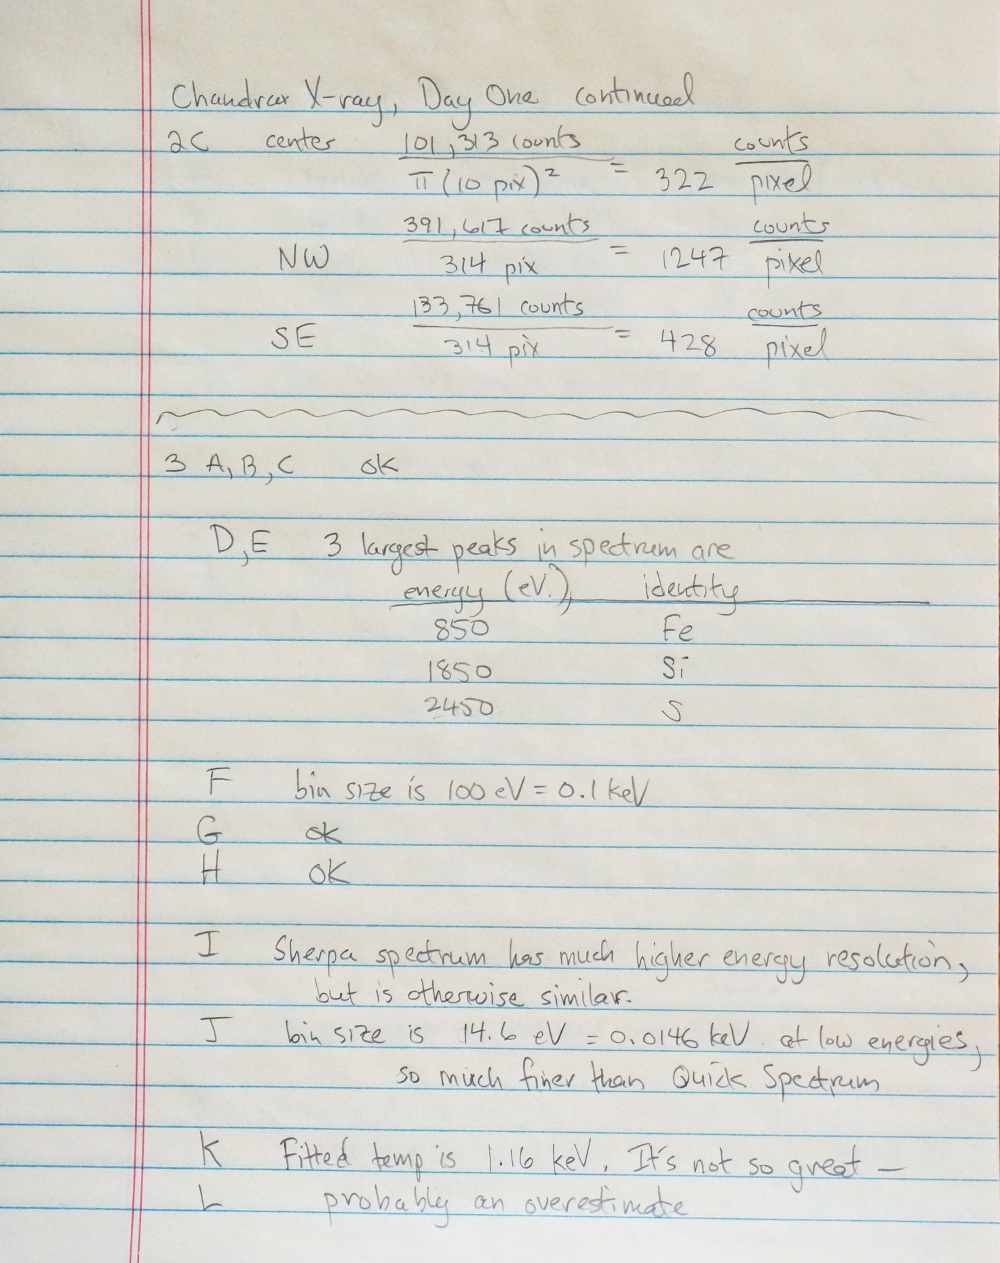 Chandra X-ray, Day One continued
2C center 101,313 counts / π(10 pix)² = 322 counts / pixel
NW 391,617 counts / 314 pix = 1247 counts / pixel
SE 133,761 counts / 314 pix = 428 counts / pixel
3 A, B, C ok
D,E 3 largest peaks in spectrum are
energy (eV) identity
850 Fe
1850 Si
2450 S
F bin size is 100 eV = 0.1 keV
G ok
H OK
I Sherpa spectrum has much higher energy resolution,
but is otherwise similar.
J bin size is 14.6 eV = 0.0146 keV at low energies,
so much finer than Quick Spectrum
K Fitted temp is 1.16 keV. It's not so great —
L probably an overestimate